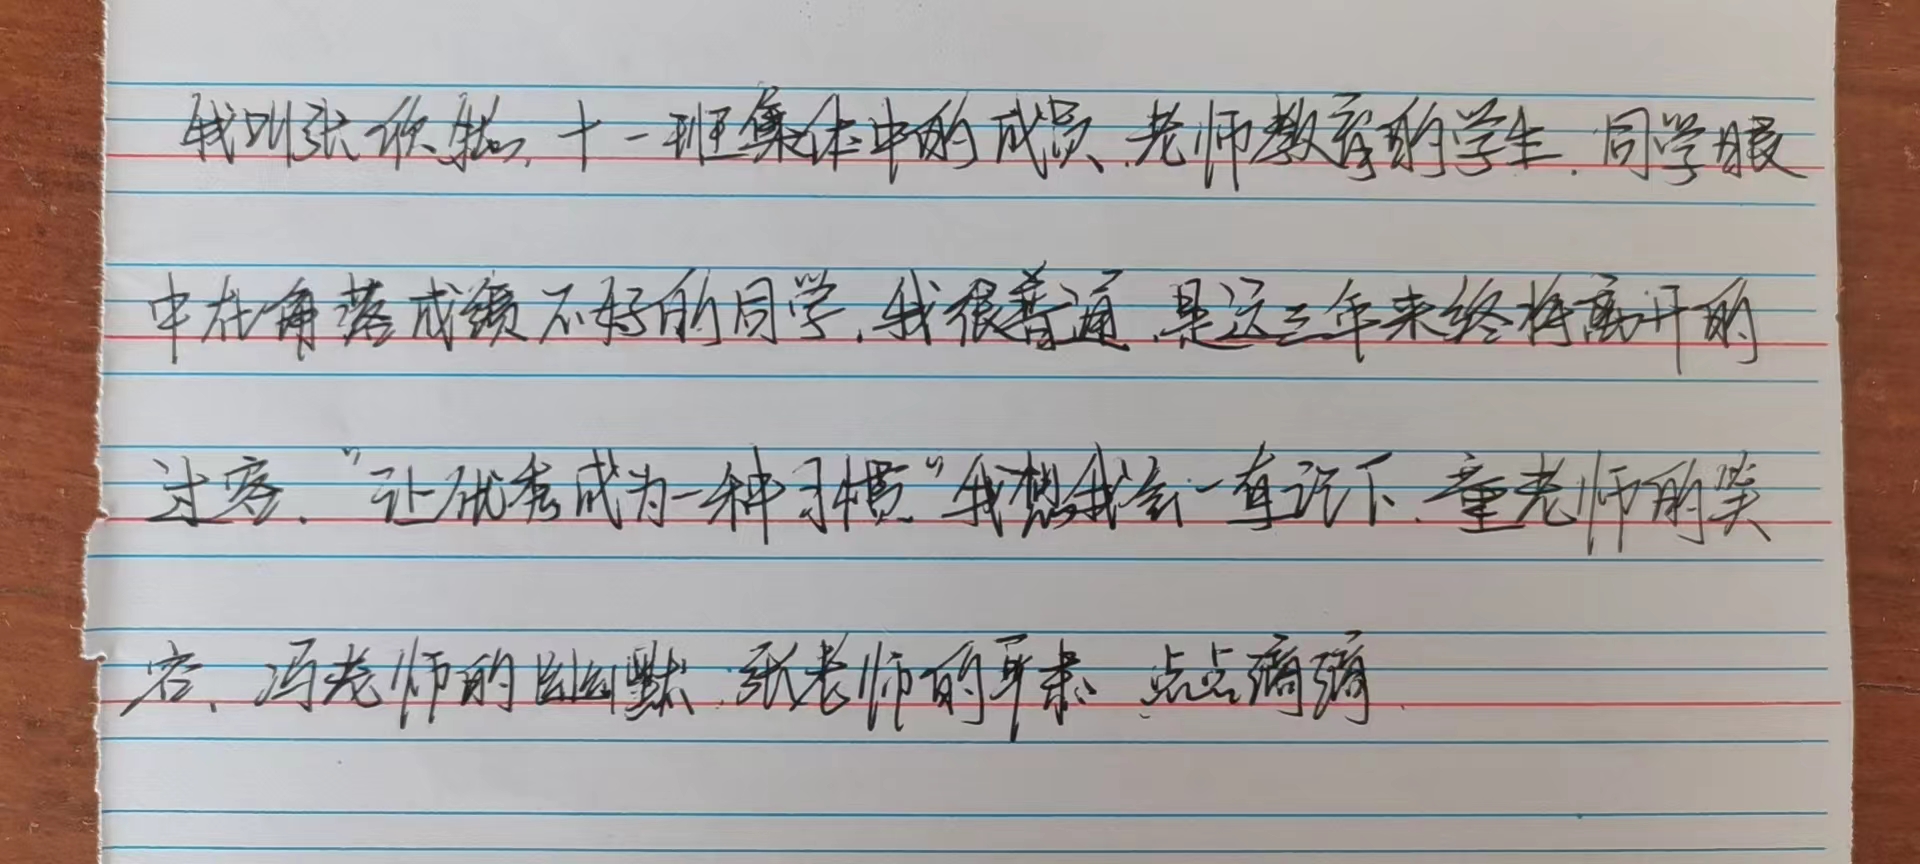 我叫张依然，十一班集体中的成员、老师教育的学生、同学眼
中在角落成绩不好的同学，我很普通，是这三年来终将离开的
过客、“让优秀成为一种习惯”我想我会一直记下、童老师的笑
容、冯老师的幽默、张老师的严肃、点点滴滴